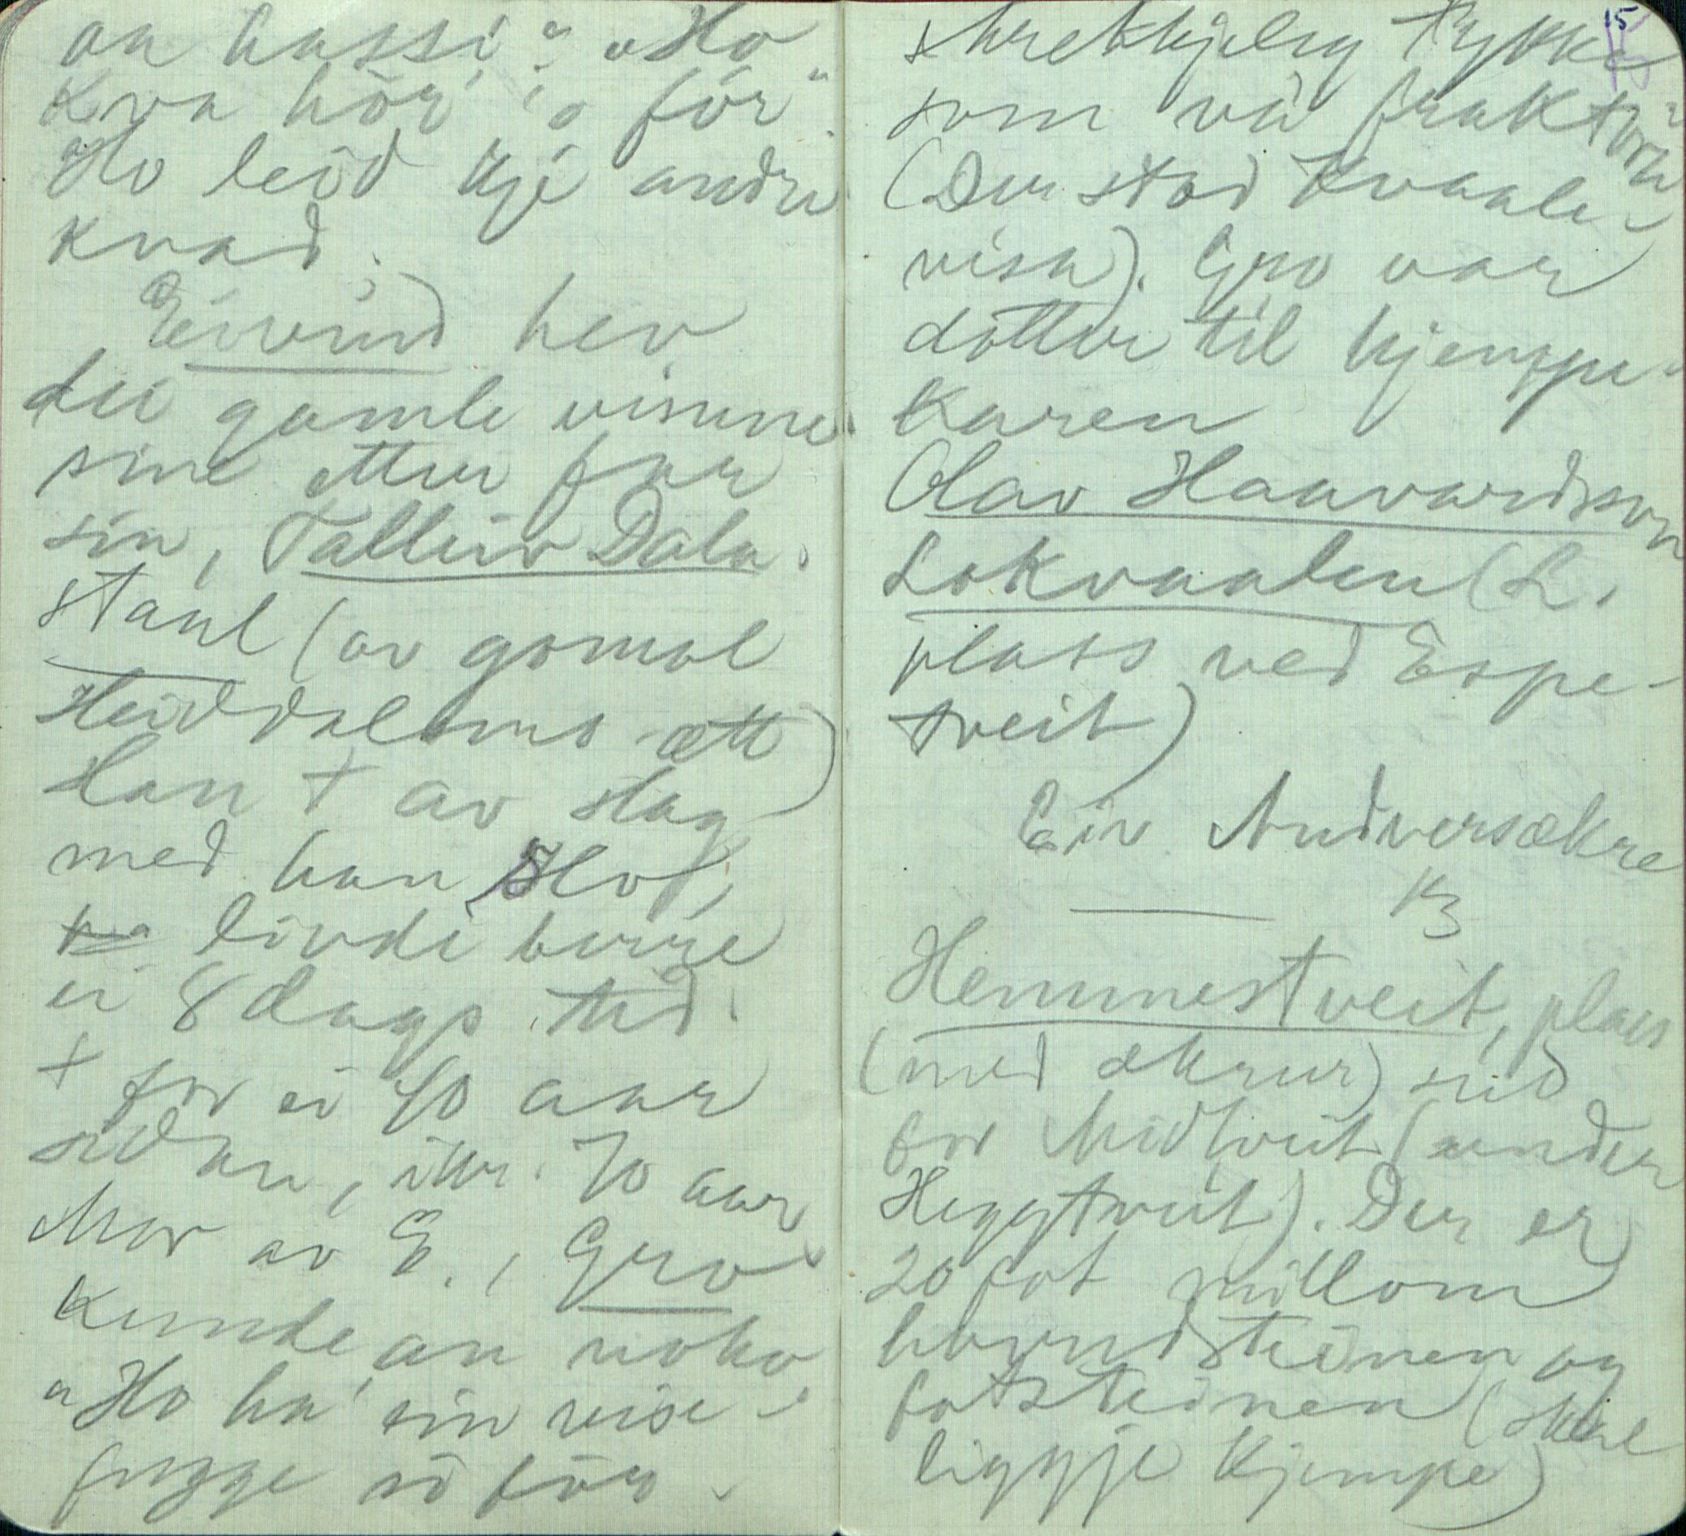 an hassi?" "Ho
Kva hör' o för"
Ho leid kje andre
kvad.
Eivind hev
dei gamle visune
sine etter far
sin, Talleiv Dala-
staul (av gomol
Heiddalsms ætt)
Han + av slag
med han Hov,
livde berre
ei 8 dags tid.
+ for ei 40 aar
sidan, 70 aar
Mor av E., Gro
kunde an noko,
"Ho ha' ein vise-
fugge so för
skrekkjeleg tykke
som vå prakt
(Der stod Kvaale-
visa). Gro var
dotter til kjempe-
karen
Olav Haavardsson
Lokvaalen (L.
plass ved Espe-
tveit)
Eiv Nudversækre
K3
Hemmestveit, plass
(med ækrur) sud
for Midtveit (under
Heggtveit). Der er
20 fot millom
hovudsteinen og
fotsteinen (skal
liggje Kjempe)
15